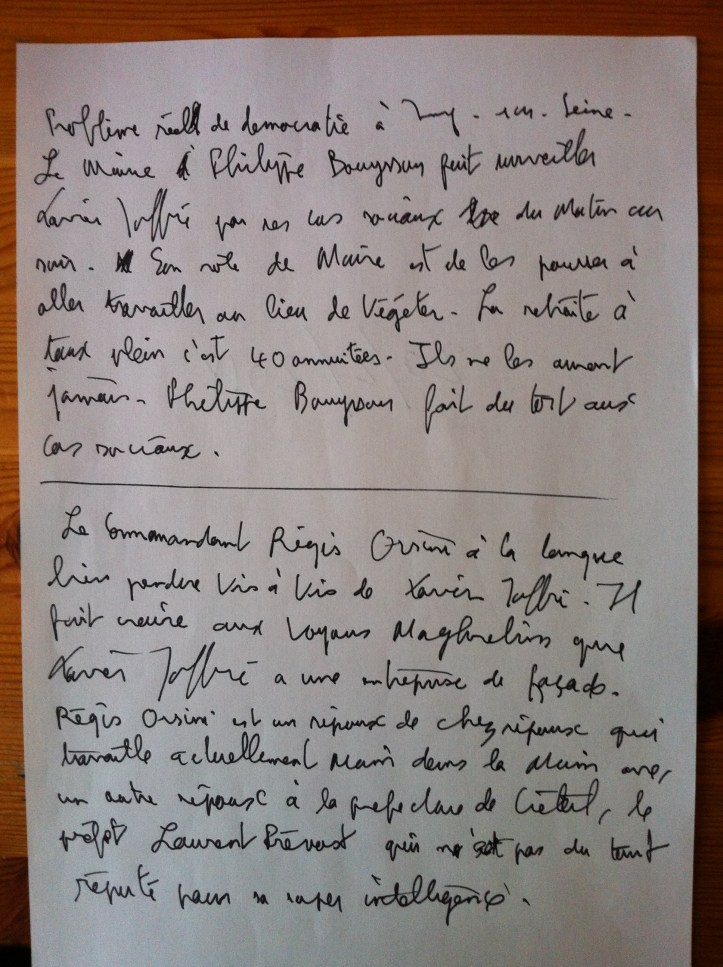 Problème réel de democratie à Ivry-sur-Seine-
Le Maire Philippe Bouyssou fait surveiller
Xavier Joffre par ses cas sociaux du Matin au
soir. Son rôle de Maire est de les pousser à
aller travailler au lieu de Végéter. La retraite à
taux plein c'est 40 annuitées. Ils ne les auront
jamais. Philippe Bouyssou fait du tort aux
cas sociaux.
Le Commandant Régis Orsini à la langue
bien pendue Vis à Vis de Xavier Joffre. Il
fait croire aux Voyous Maghrebins que
Xavier Joffre a une entreprise de façade.
Régis Orsini est un ripoux de chez ripoux qui
travaille actuellement Main dans la Main avec
un autre ripoux à la prefecture de Créteil, le
préfet Laurent Prévost qui n'est pas du tout
réputé pour sa super intelligence.